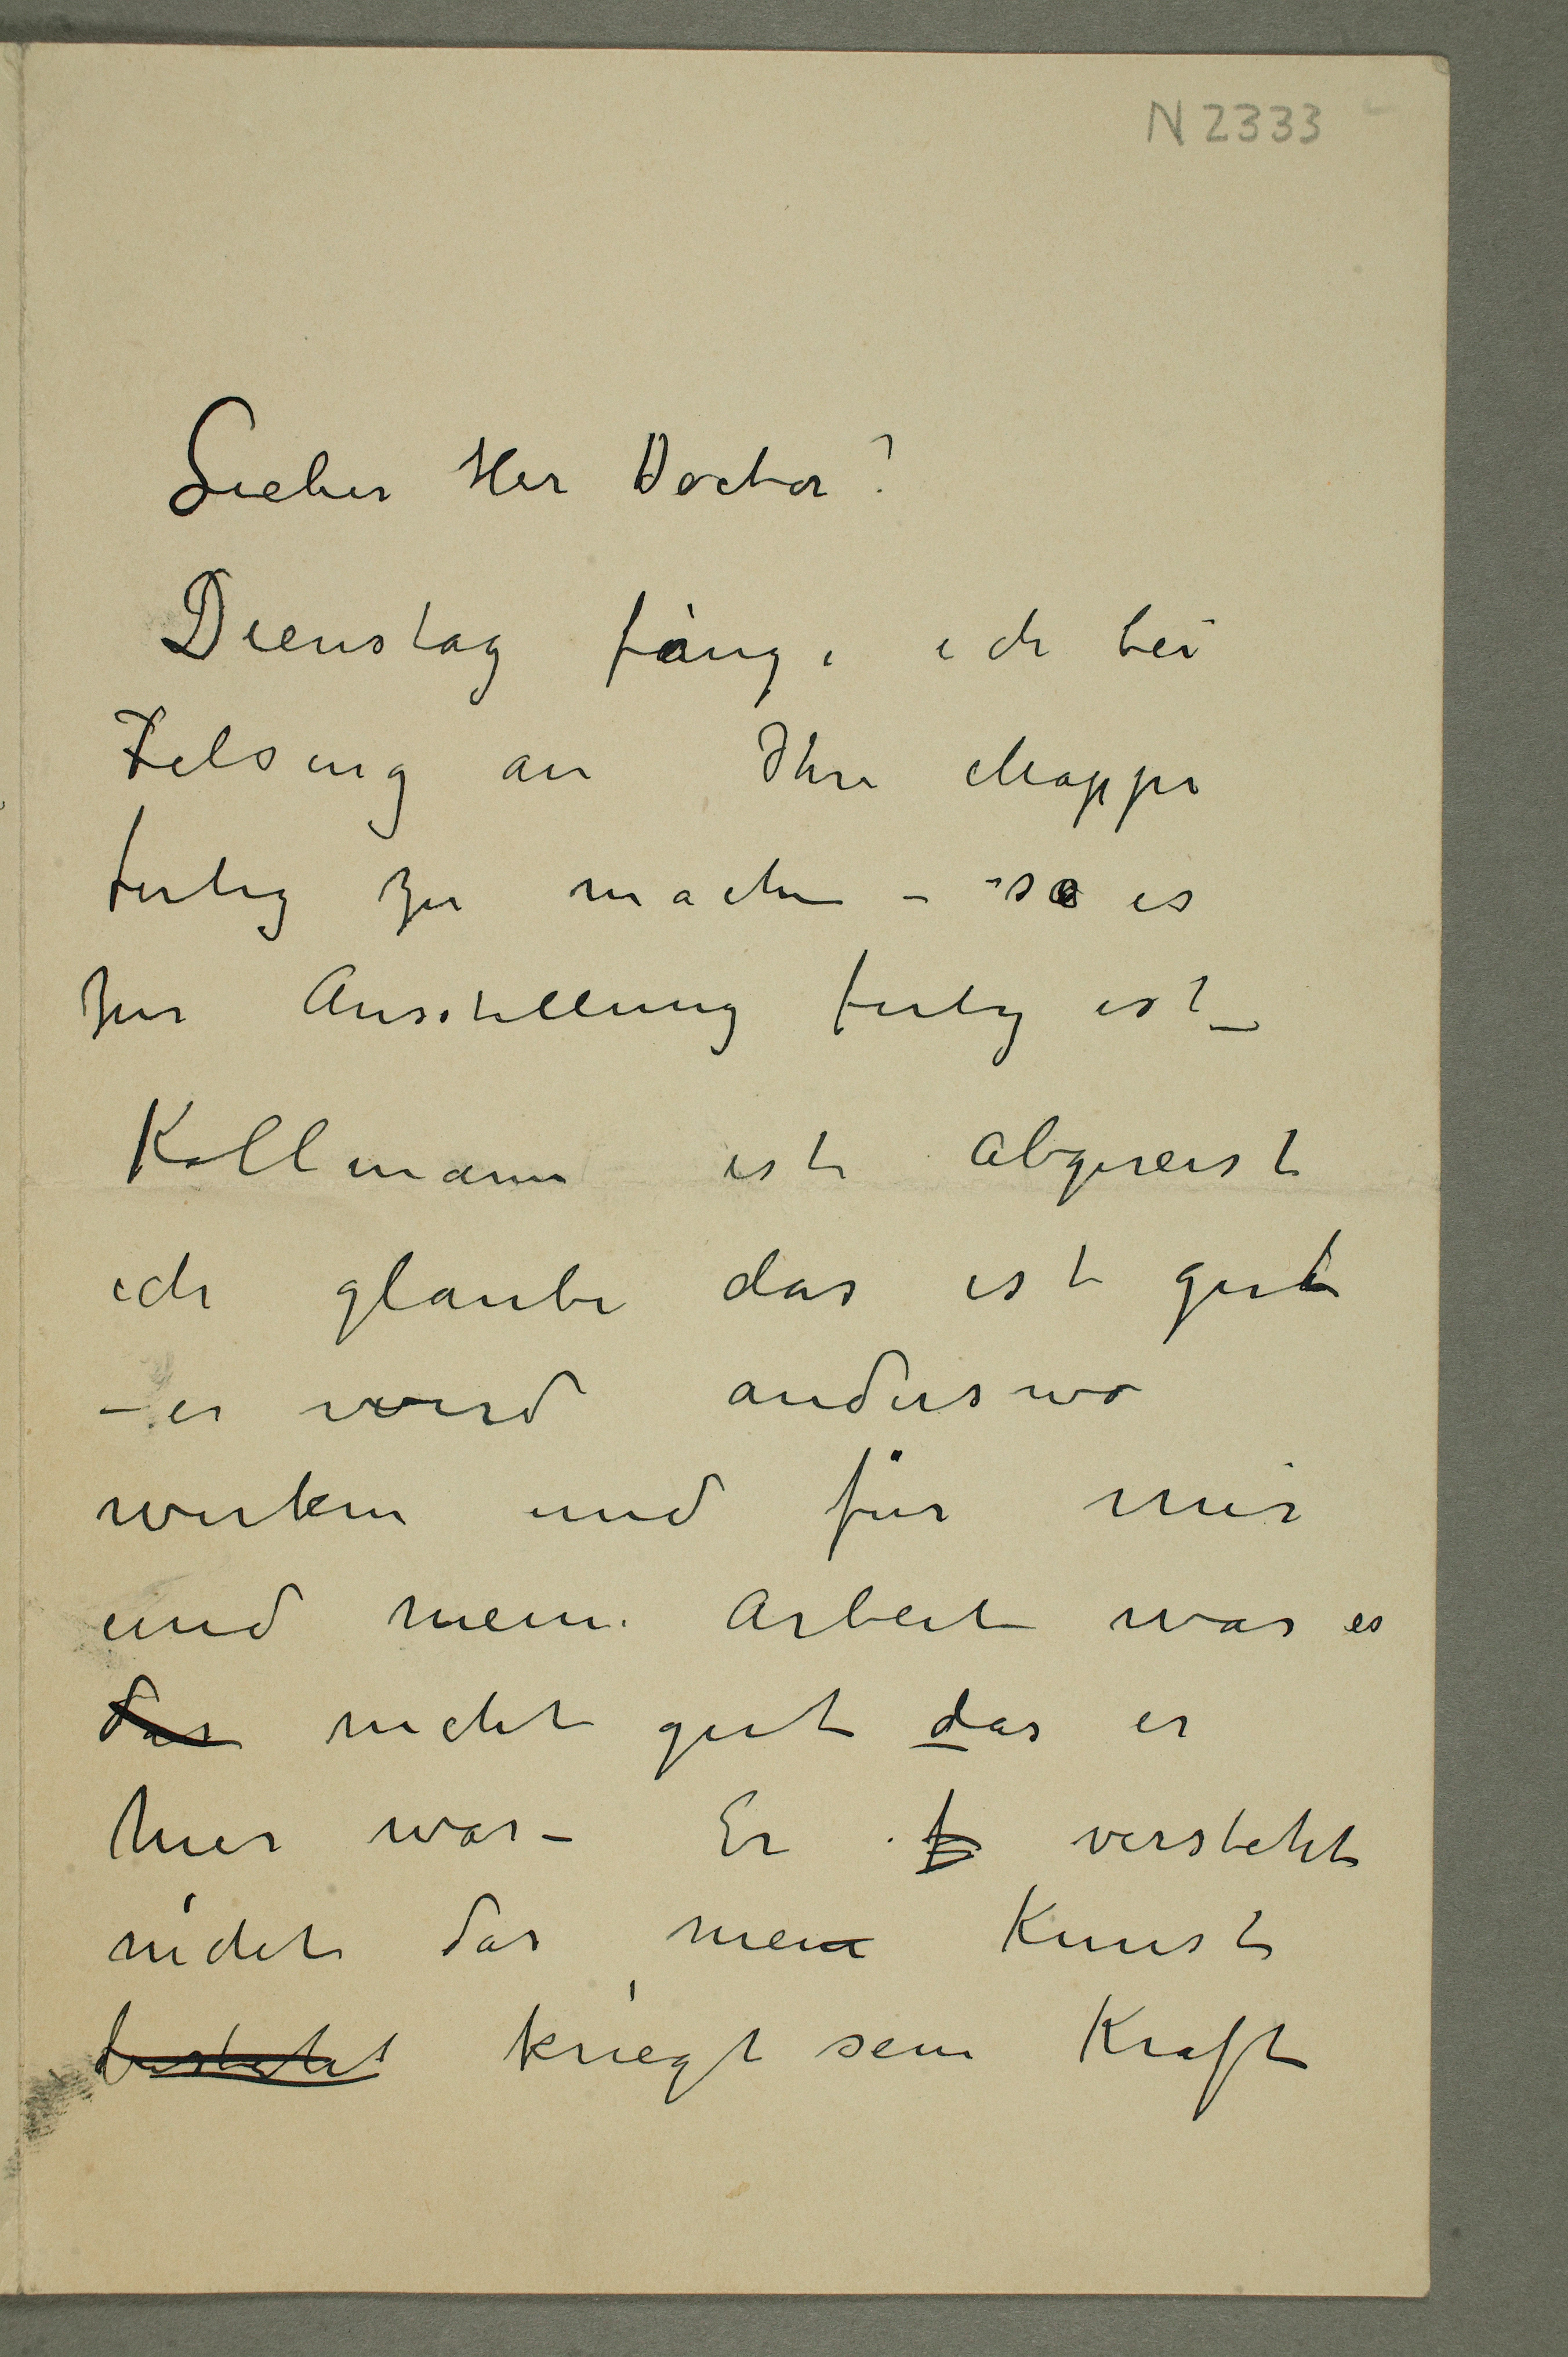 N 2333
Lieber Her Doctor!
Dienstag fange ich bei
Felsing an Ihre Mappe
fertig zu machen – so es
zur Ausstellung fertig ist –
Kollmann ist abgereist
ich glaube das ist gut
– er wird anderswo
wirken und für mir
und meine Arbeit war es
das nicht gut das er
hier war – Er versteht
nicht das mein Kunst
besteht kriegt sein Kraft